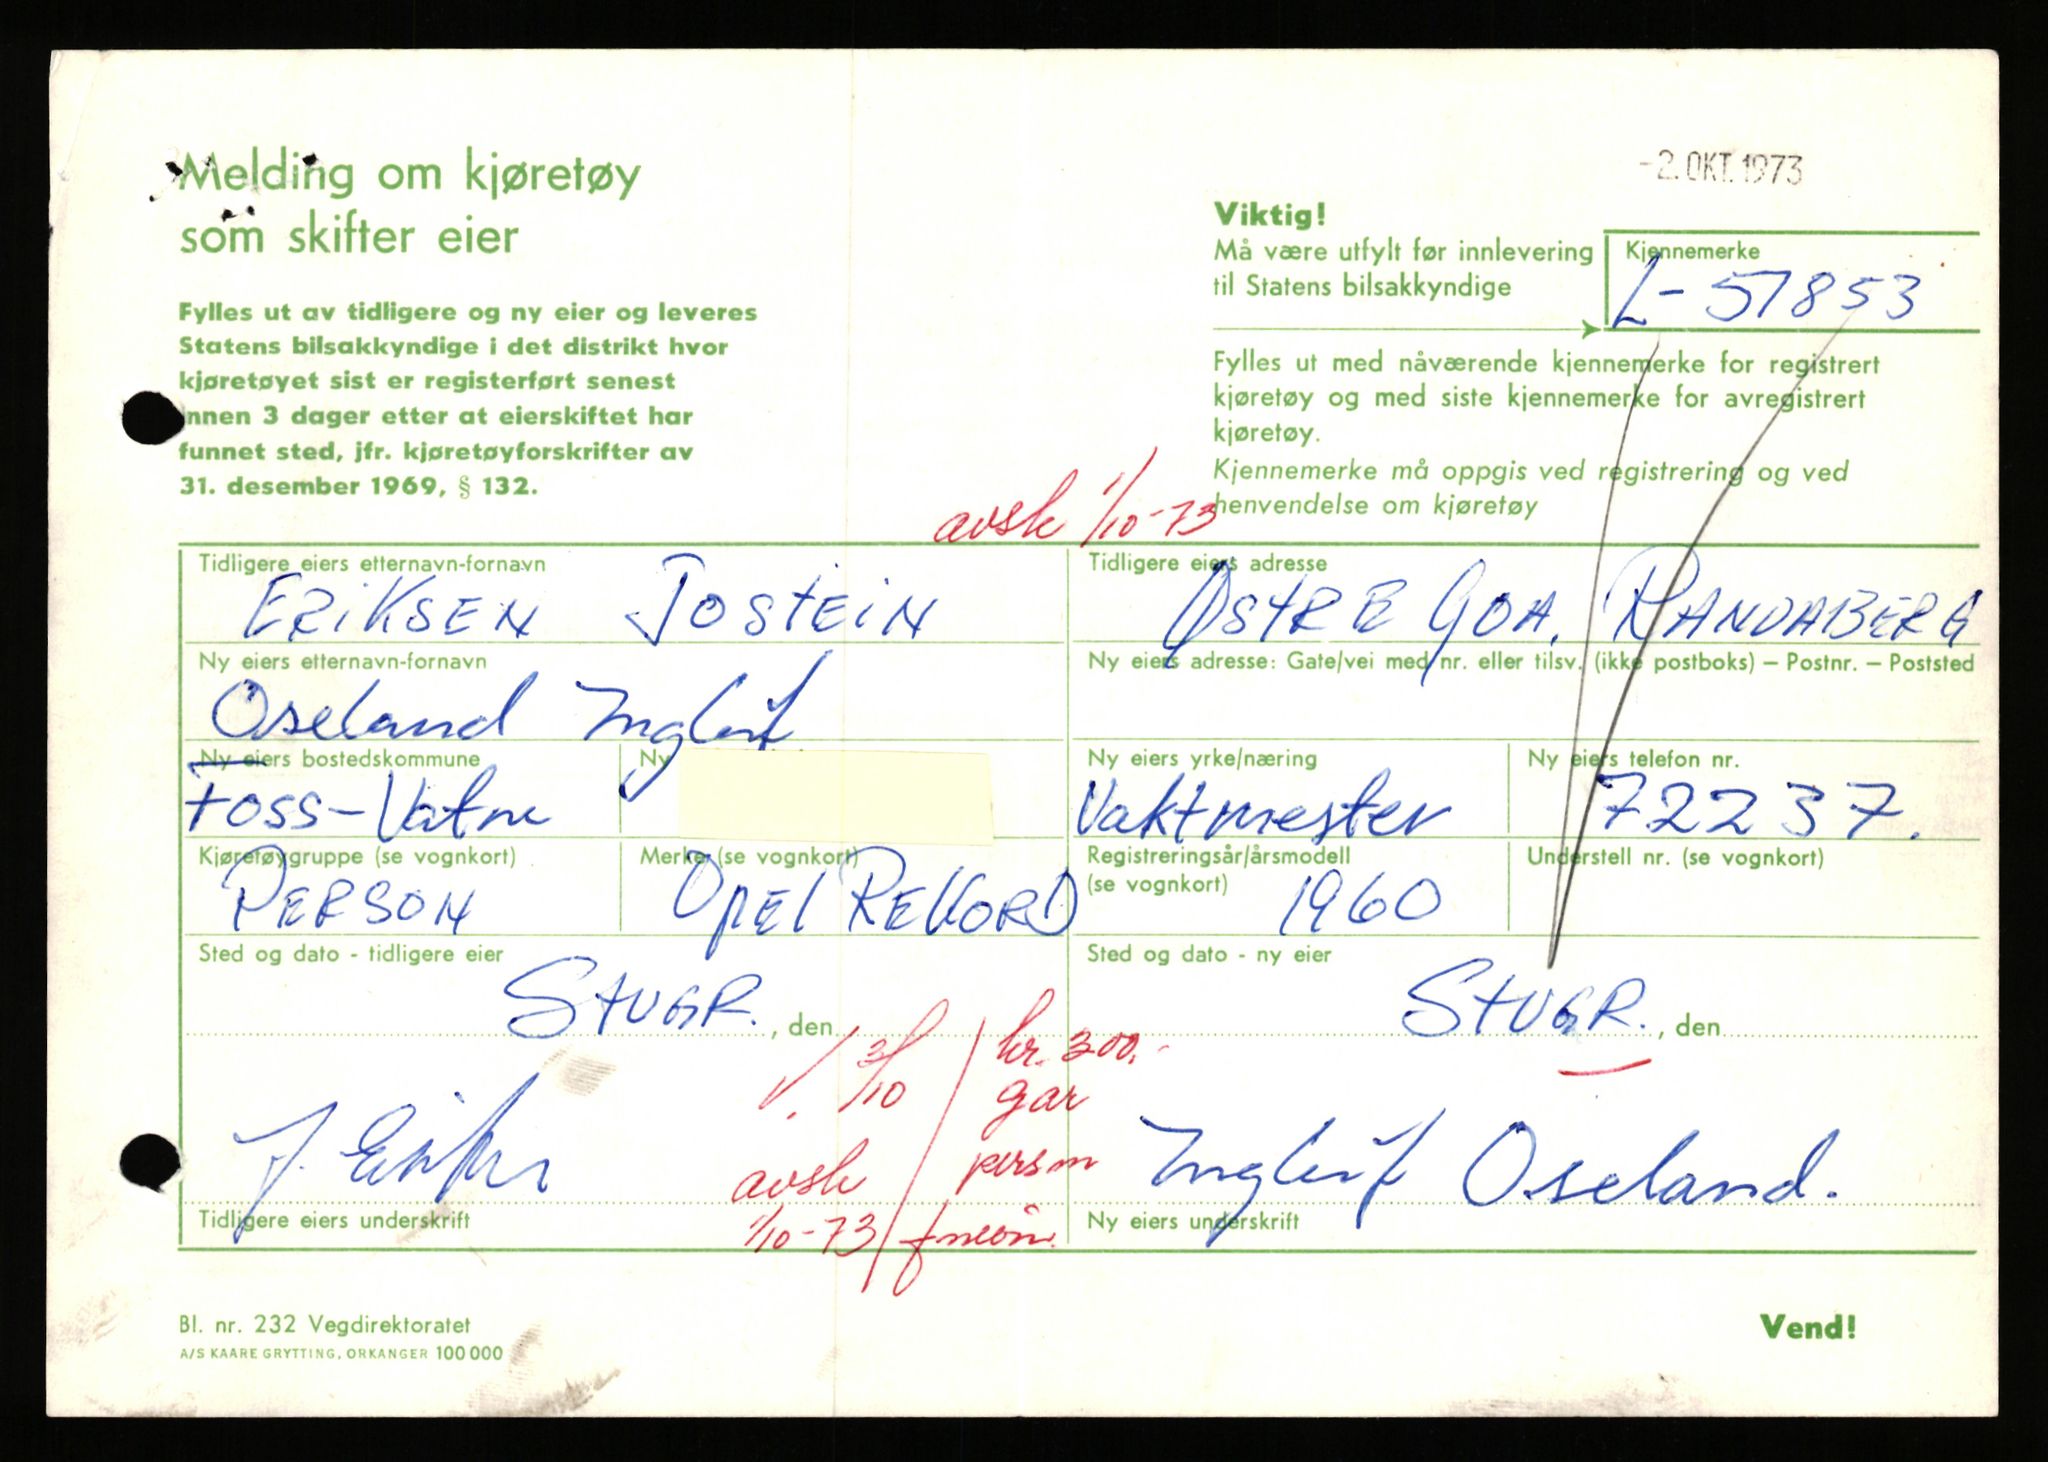 -2. OKT. 1973
Melding om kjøretøy
som skifter eier
Fylles ut av tidligere og ny eier og leveres
Statens bilsakkyndige i det distrikt hvor
kjøretøyet sist er registerført senest
innen 3 dager etter at eierskiftet har
funnet sted, jfr. kjøretøyforskrifter av
31. desember 1969, § 132.
Viktig!
Må være utfylt før innlevering
til Statens bilsakkyndige
Kjennemerke
L-57853
Fylles ut med nåværende kjennemerke for registrert
kjøretøy og med siste kjennemerke for avregistrert
kjøretøy.
Kjennemerke må oppgis ved registrering og ved
henvendelse om kjøretøy
avsk 1/10-73
Tidligere eiers etternavn-fornavn
ERIKSEN JOSTEIN
Tidligere eiers adresse
ØSTRE GOA. RANDABERG
Ny eiers etternavn-fornavn
Oseland Ingleif
Ny eiers adresse: Gate/vei med nr. eller tilsv. (ikke postboks) – Postnr. – Poststed
Ny eiers bostedskommune
Foss-Vatne
Ny
Ny eiers yrke/næring
Vaktmester
Ny eiers telefon nr.
72237.
Kjøretøygruppe (se vognkort)
PERSON
Merke (se vognkort)
OPEL REKORD
Registreringsår/årsmodell
(se vognkort)
1960
Understell nr. (se vognkort)
Sted og dato - tidligere eier
STVGR., den
Sted og dato - ny eier
STVGR., den
3/10
kr. 300,-
gar
person
avsk
1/10-73
J. Eriksen
Tidligere eiers underskrift
Ingleif Oseland.
Ny eiers underskrift
Bl. nr. 232 Vegdirektoratet
A/S KAARE GRYTTING, ORKANGER 100 000
Vend!